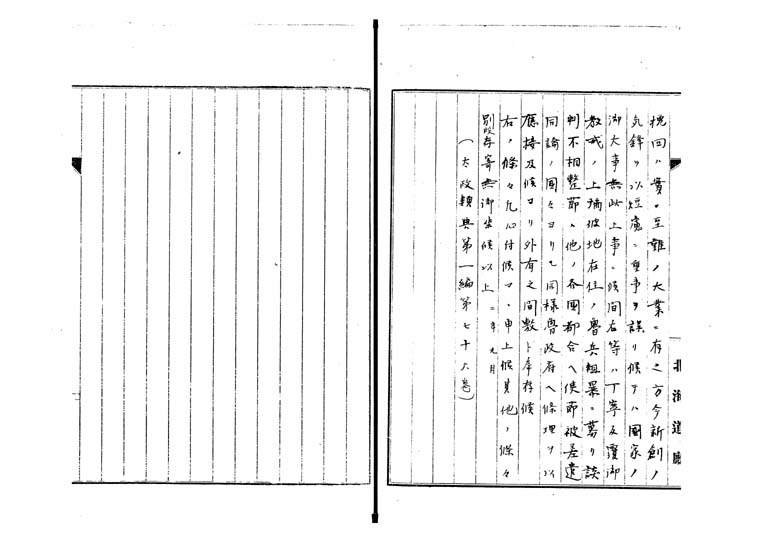 挽回ハ実ニ至難ノ大業ニ有之方今新創ノ
気鋒ヲ以短慮ニ重事ヲ誤リ候テハ国家ノ
御大事無此上事ニ候間右等ハ丁寧反覆御
教戒ノ上樺彼地在住ノ魯兵粗暴ニ募リ談
判不相整節ハ他ノ各国都合ヘ使節被差遣
同論ノ国々ヨリモ同様魯政府ヘ条理ヲ以
応接及候ヨリ外有之間敷ト奉存候
右ノ條々凡心付候マヽ申上候其他ノ條々
別段存寄無御坐候以上 二年九月
(太政類典第一編第七十六巻)
北海道廳